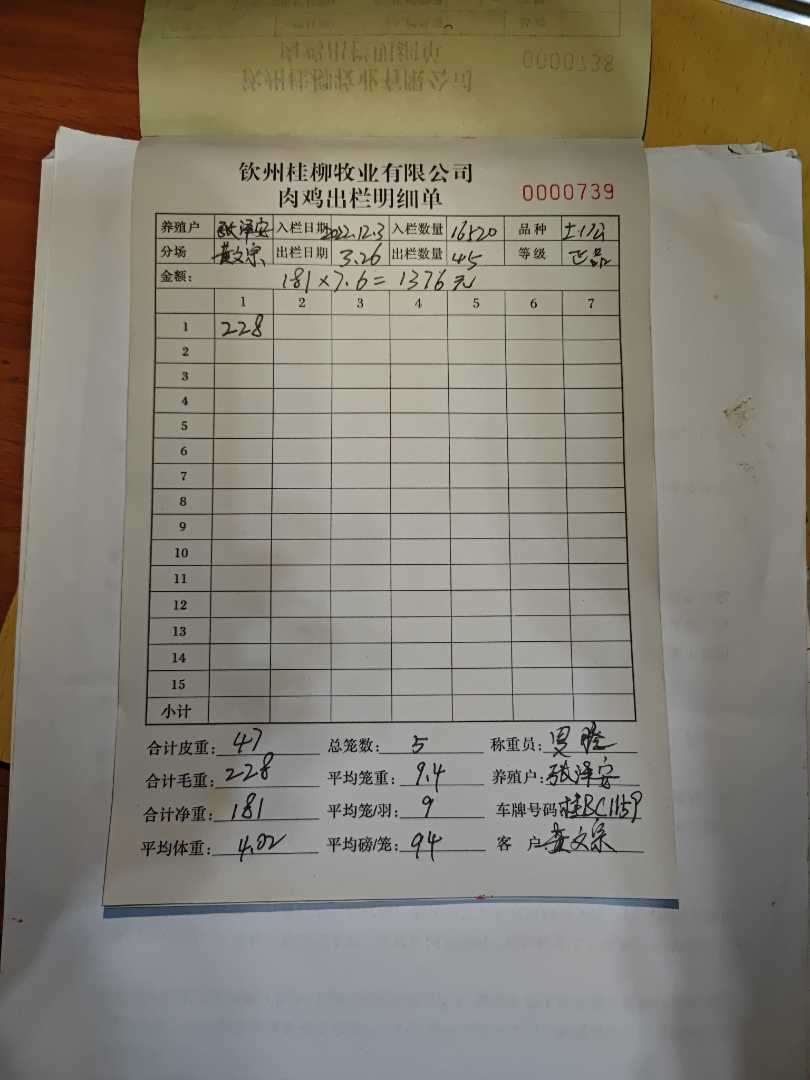 钦州桂柳牧业有限公司
肉鸡出栏明细单
0000738
钦州桂柳牧业有限公司
肉鸡出栏明细单 0000739
养殖户 张泽安 入栏日期 2022.12.3 入栏数量 16520 品种 土1公
分场 黄文宗 出栏日期 3.26 出栏数量 45 等级 正品
金额: 181×7.6=1376元
1 2 3 4 5 6 7
1 228
2
3
4
5
6
7
8
9
10
11
12
13
14
15
小计
合计皮重: 47 总笼数: 5 称重员:
合计毛重: 228 平均笼重: 9.4 养殖户: 张泽安
合计净重: 181 平均笼/羽: 9 车牌号码 桂BC1159
平均体重: 4.02 平均磅/笼: 94 客户 黄文宗